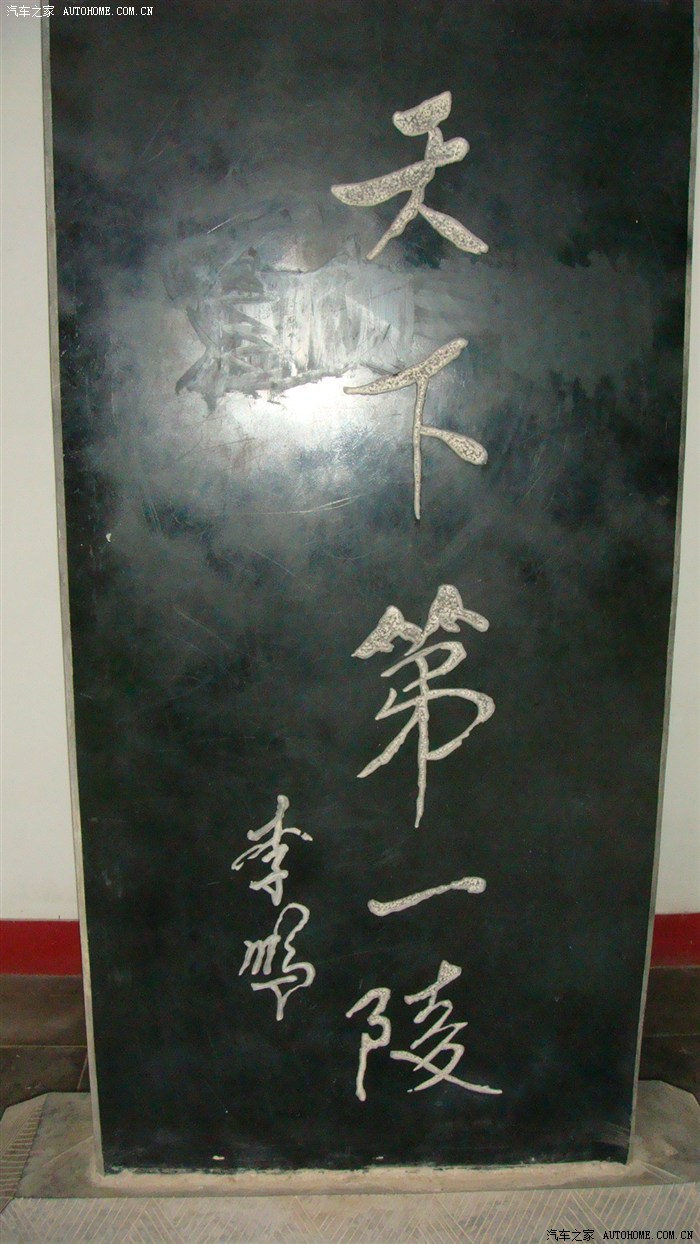 汽车之家 AUTOHOME.COM.CN
天下第一陵
李鹏
汽车之家 AUTOHOME.COM.CN